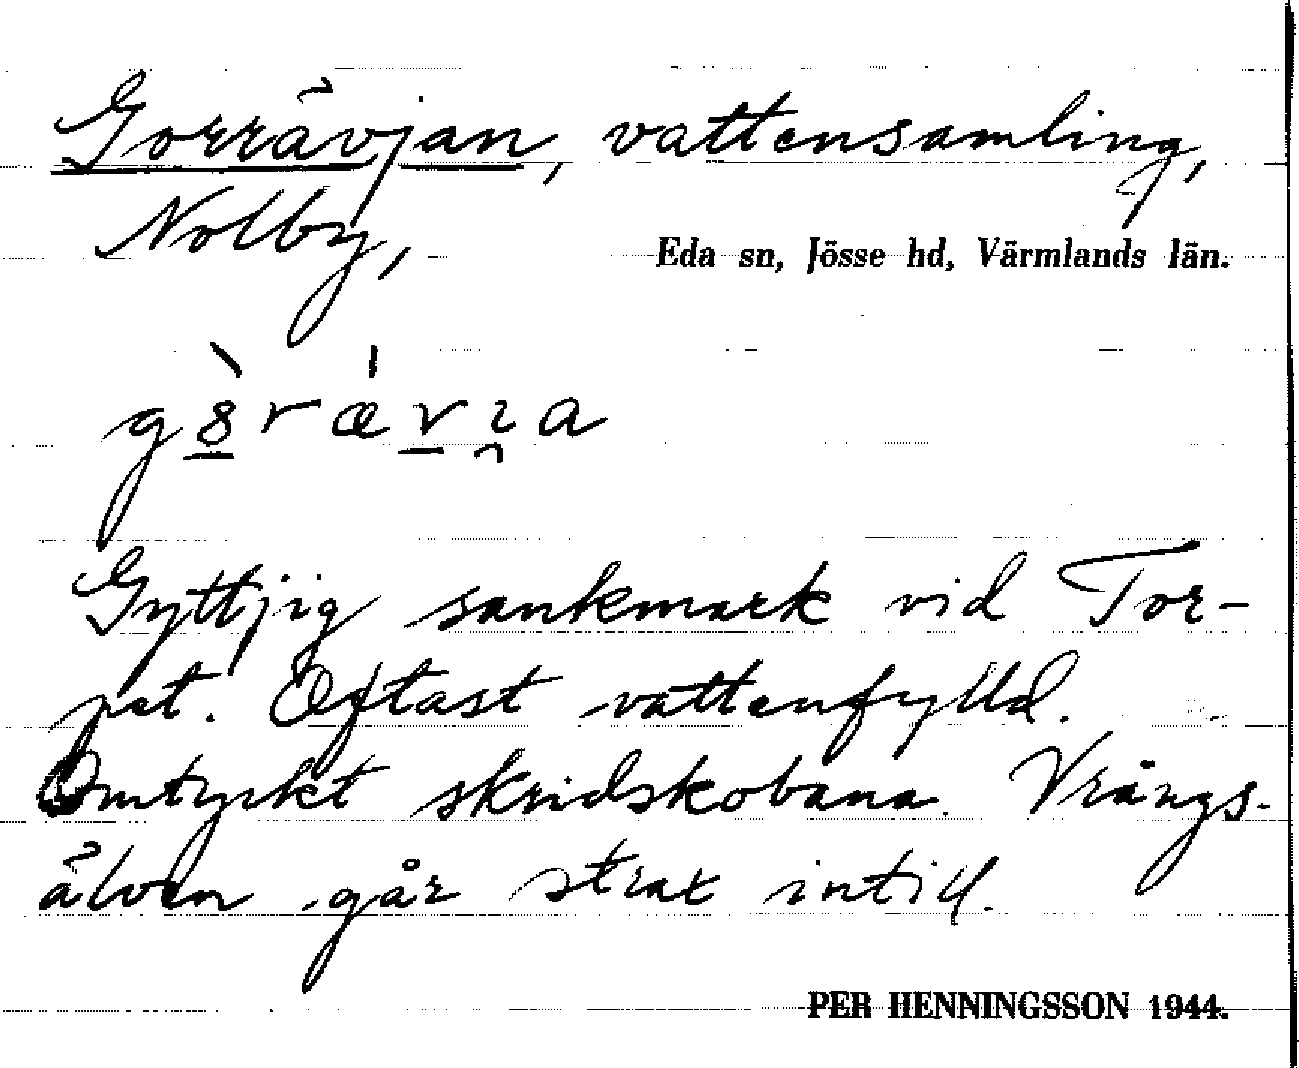 Gorrävjan, vattensamling,
Nolby,
Eda sn, Jösse hd, Värmlands län.
Gyttjig sankmark vid Tor-
pet. Oftast vattenfylld.
Omtyckt skridskobana. Vrängs-
älven går strax intill.
PER HENNINGSSON 1944.